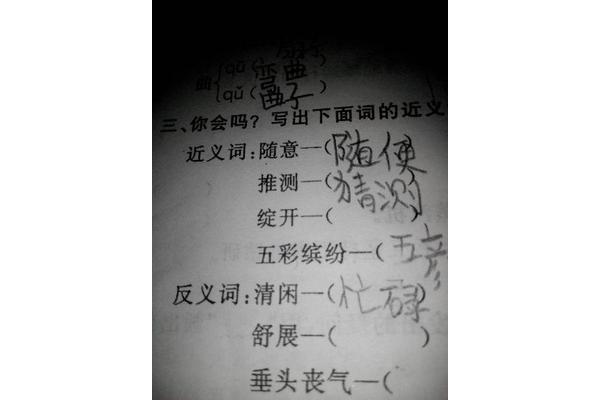 曲 qū (弯曲)
qǔ (曲子)
三、你会吗？写出下面词的近义
近义词：随意—(随便)
推测—(猜测)
绽开—(
五彩缤纷—(五彦
反义词：清闲—(忙碌)
舒展—( )
垂头丧气—(